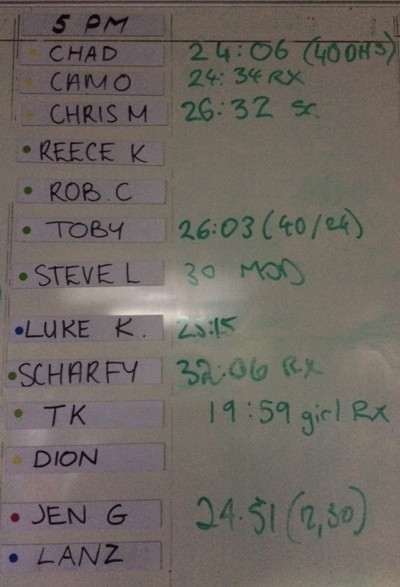 5 PM
CHAD 24:06 (40DHS)
CAMO 24:34 RX
CHRIS M 26:32 Sc
REECE K
ROB.C
TOBY 26:03 (40/24)
STEVE L 30 MOD
LUKE K. 25:15
SCHARFY 32:06 RX
TK 19:59 girl RX
DION
JEN G 24.51 (12,30)
LANZ